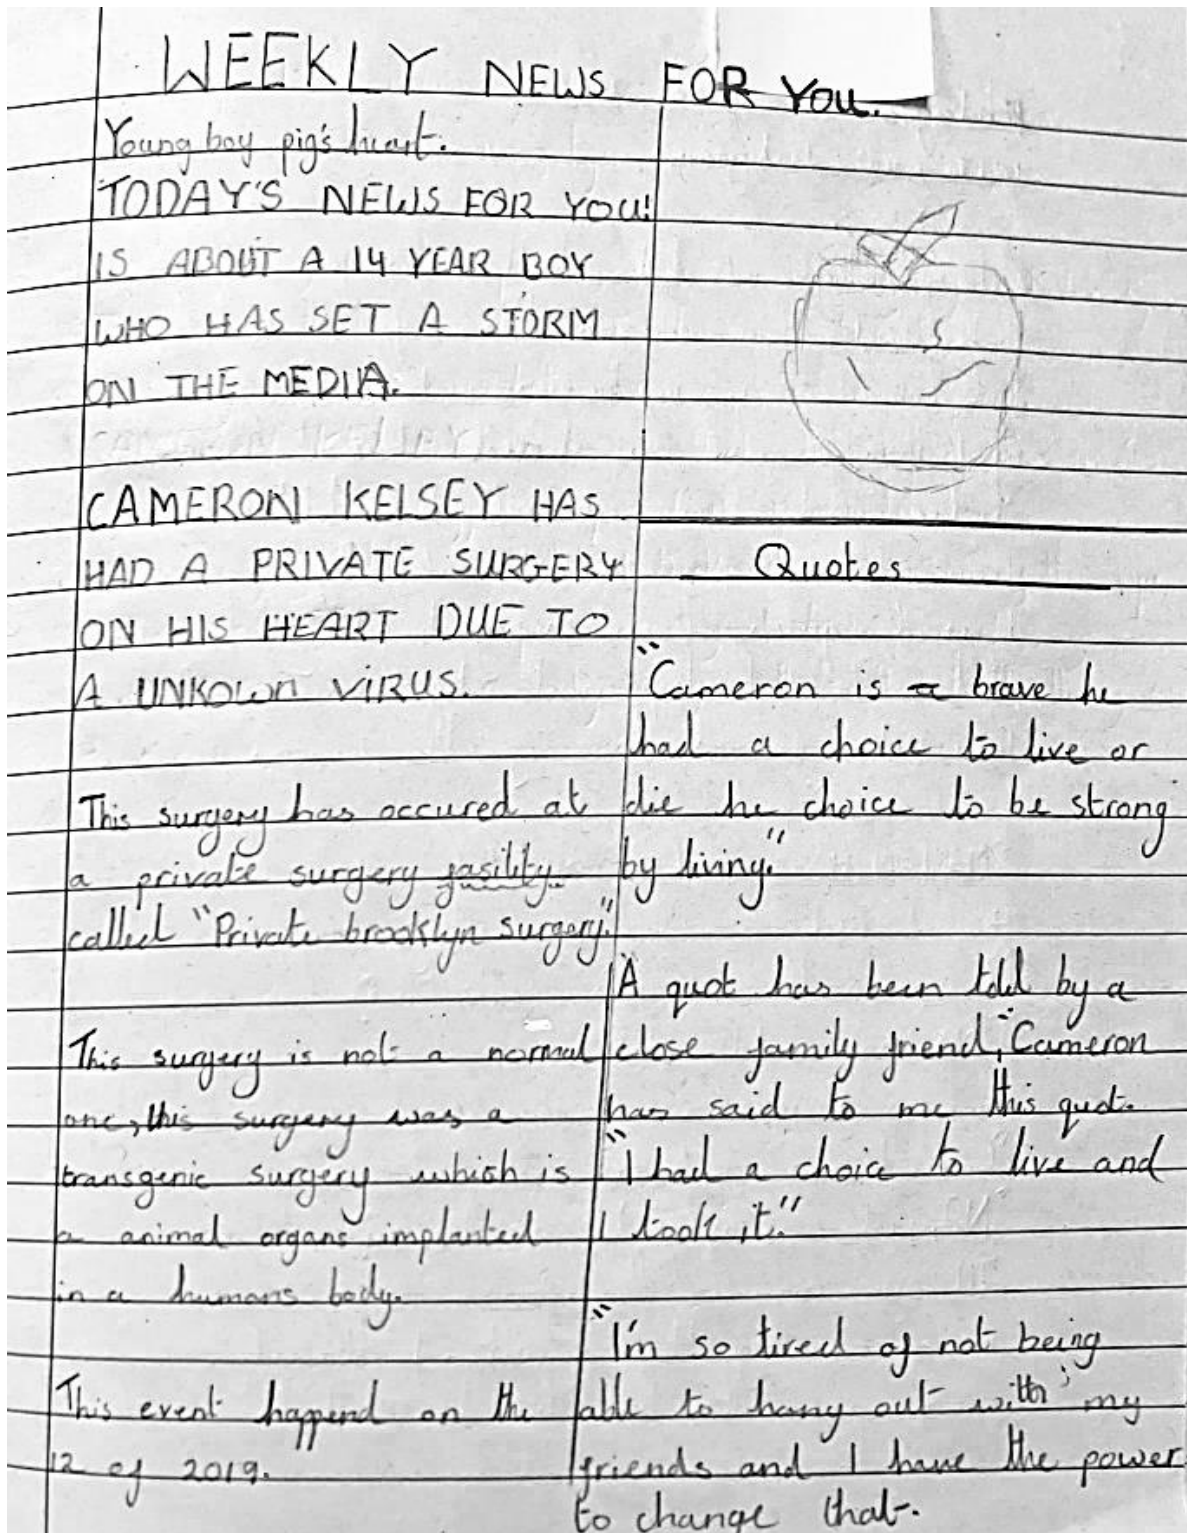 WEEKLY NEWS FOR YOU.
Young boy pig's heart.
TODAY'S NEWS FOR YOU!
IS ABOUT A 14 YEAR BOY
WHO HAS SET A STORM
ON THE MEDIA.
CAMERON KELSEY HAS
HAD A PRIVATE SURGERY
ON HIS HEART DUE TO
A UNKOWN VIRUS.
This surgery has occured at
a private surgery fasility
called "Private brooklyn surgery."
This surgery is not a normal
one, this surgery was a
transgenic surgery which is
a animal organs implanted
in a humans body.
This event happend on the
12 of 2019.
Quotes
"Cameron is a brave he
had a choice to live or
die he choice to be strong
by living."
A quot has been told by a
close family friend, "Cameron
has said to me this quot.
"I had a choice to live and
I took it."
"I'm so tired of not being
able to hang out with my
friends and I have the power
to change that.